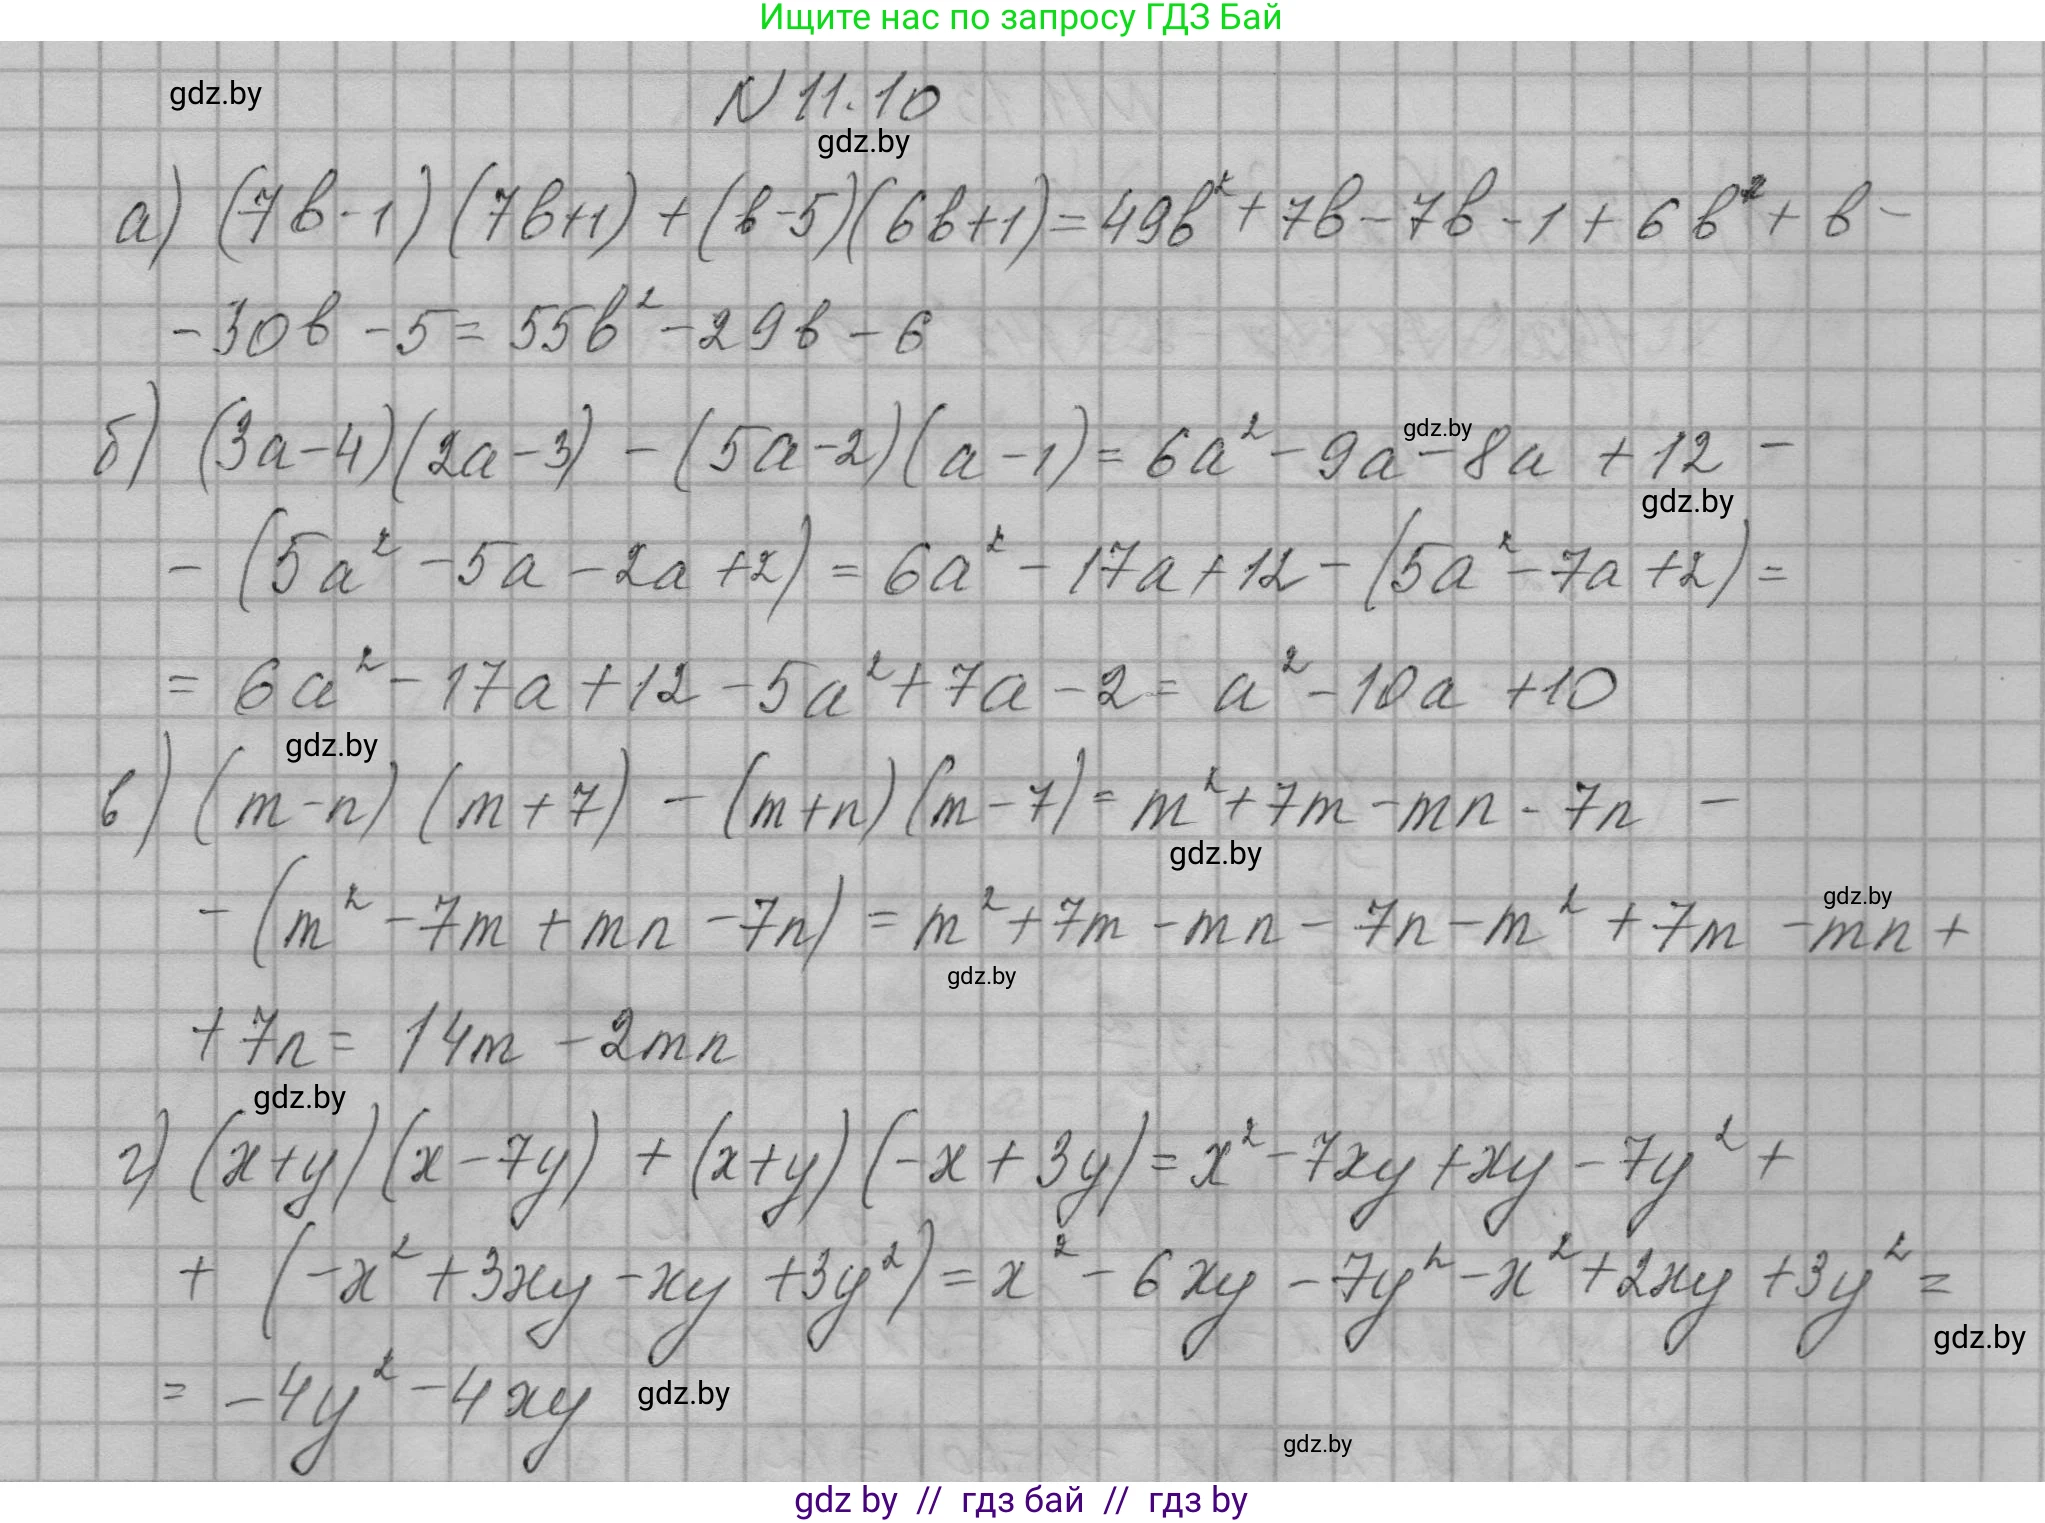 Ищите нас по запросу ГДЗ Бай
gdz.by
N 11.10
gdz.by
а) (7b-1) (7b+1) + (b-5)(6b+1) = 49b² + 7b - 7b - 1 + 6b² + b -
- 30b - 5 = 55b² - 29b - 6
gdz.by
б) (3a-4)(2a-3) - (5a-2)(a-1) = 6a² - 9a - 8a + 12 -
gdz.by
- (5a² - 5a - 2a + 2) = 6a² - 17a + 12 - (5a² - 7a + 2) =
= 6a² - 17a + 12 - 5a² + 7a - 2 = a² - 10a + 10
gdz.by
в) (m-n) (m+7) - (m+n)(m-7) = m² + 7m - mn - 7n -
gdz.by
gdz.by
- (m² - 7m + mn - 7n) = m² + 7m - mn - 7n - m² + 7m - mn +
gdz.by
+ 7n = 14m - 2mn
gdz.by
г) (x+y)(x-7y) + (x+y)(-x+3y) = x² - 7xy + xy - 7y² +
+ (-x² + 3xy - xy + 3y²) = x² - 6xy - 7y² - x² + 2xy + 3y² =
gdz.by
= -4y² - 4xy
gdz.by
gdz.by
gdz by // гдз бай // гдз by